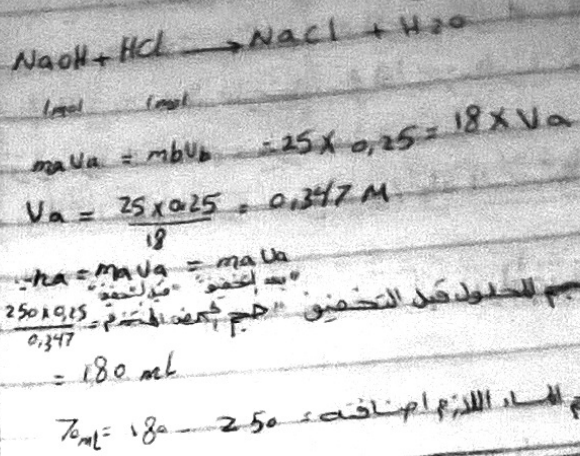 NaOH + HCl → NaCl + H2O
1mol 1mol
maVa = mbVb = 25 × 0,25 = 18 × Va
Va = 25 × 0.25 / 18 = 0,347 M
na = maVa = maVa
"بعد التخفيف" "قبل التخفيف"
حجم المحلول قبل التخفيف "حجم الحمض = 250 × 0,25 / 0,347
= 180 ml
الماء اللازم اضافته = 250 - 180 = 70 ml